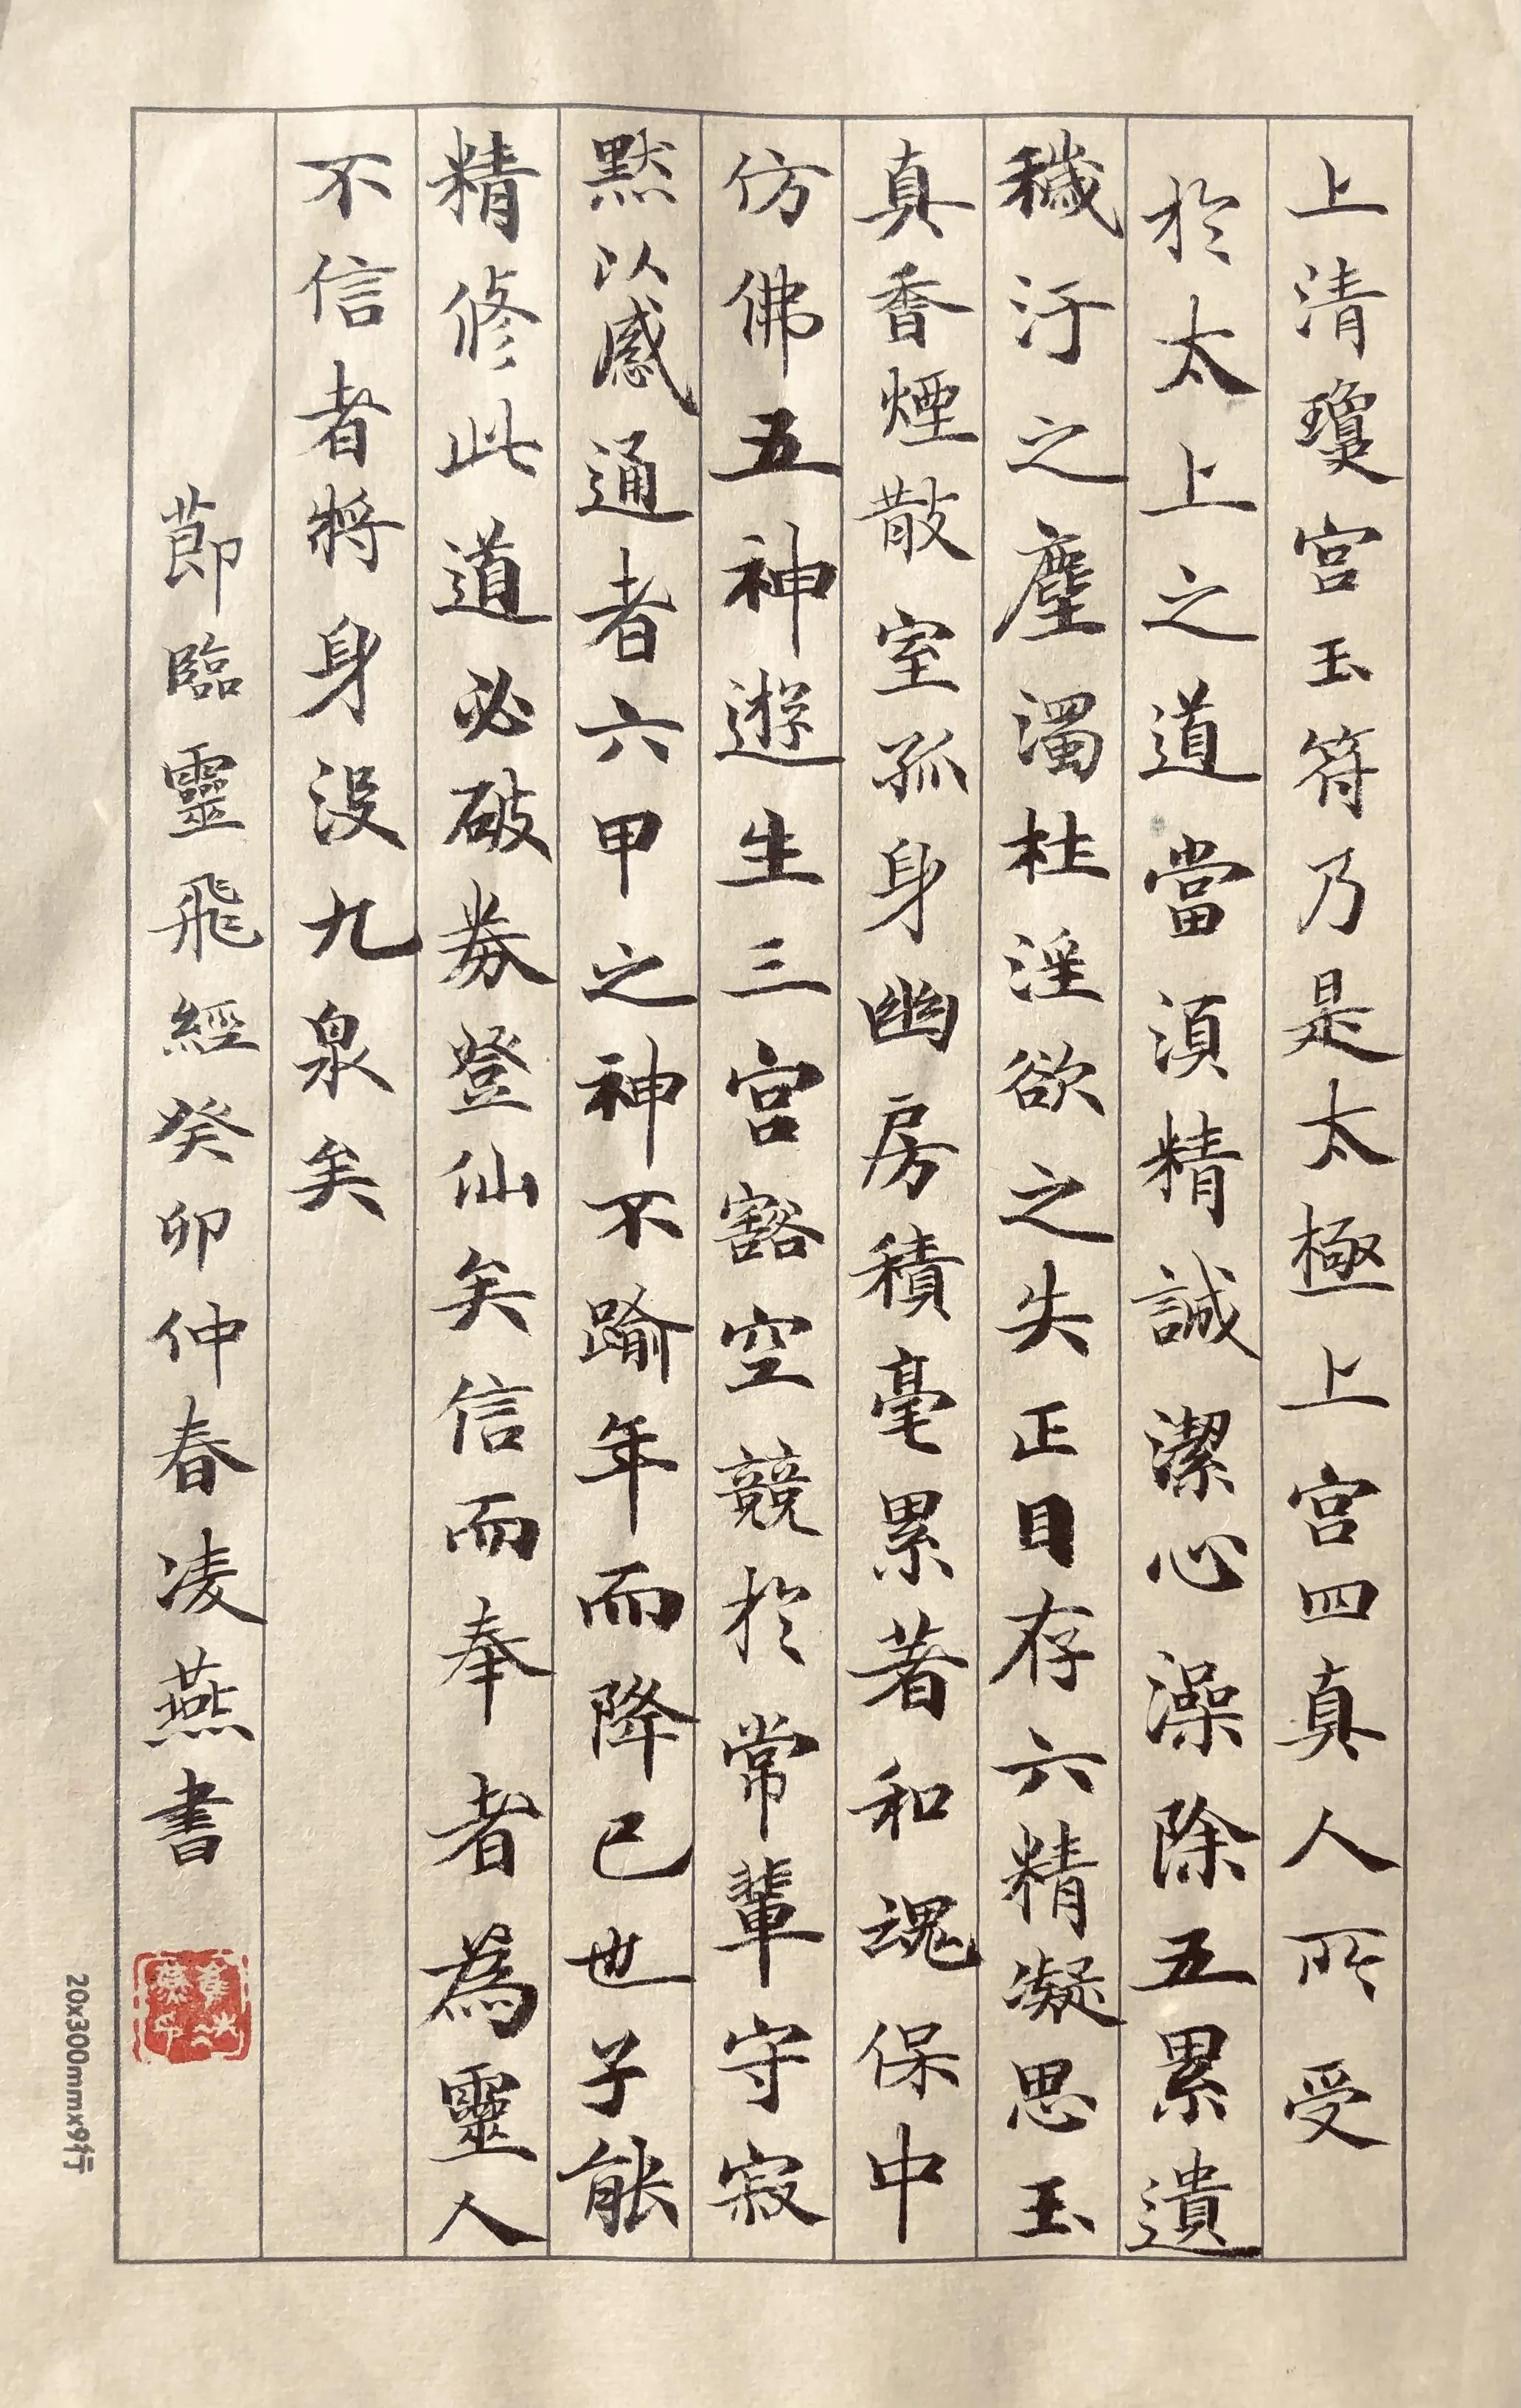 上清瓊宮玉符乃是太極上宮四真人所受
於太上之道當須精誠潔心澡除五累遺
穢汙之塵濁杜淫欲之失正目存六精凝思玉
真香煙散室孤身幽房積毫累著和魂保中
仿佛五神遊生三宮豁空競於常輩守寂
默以感通者六甲之神不踰年而降已世子能
精修此道必破券登仙矣信而奉者為靈人
不信者將身沒九泉矣
節臨靈飛經癸卯仲春凌燕書
20x300mmx9行